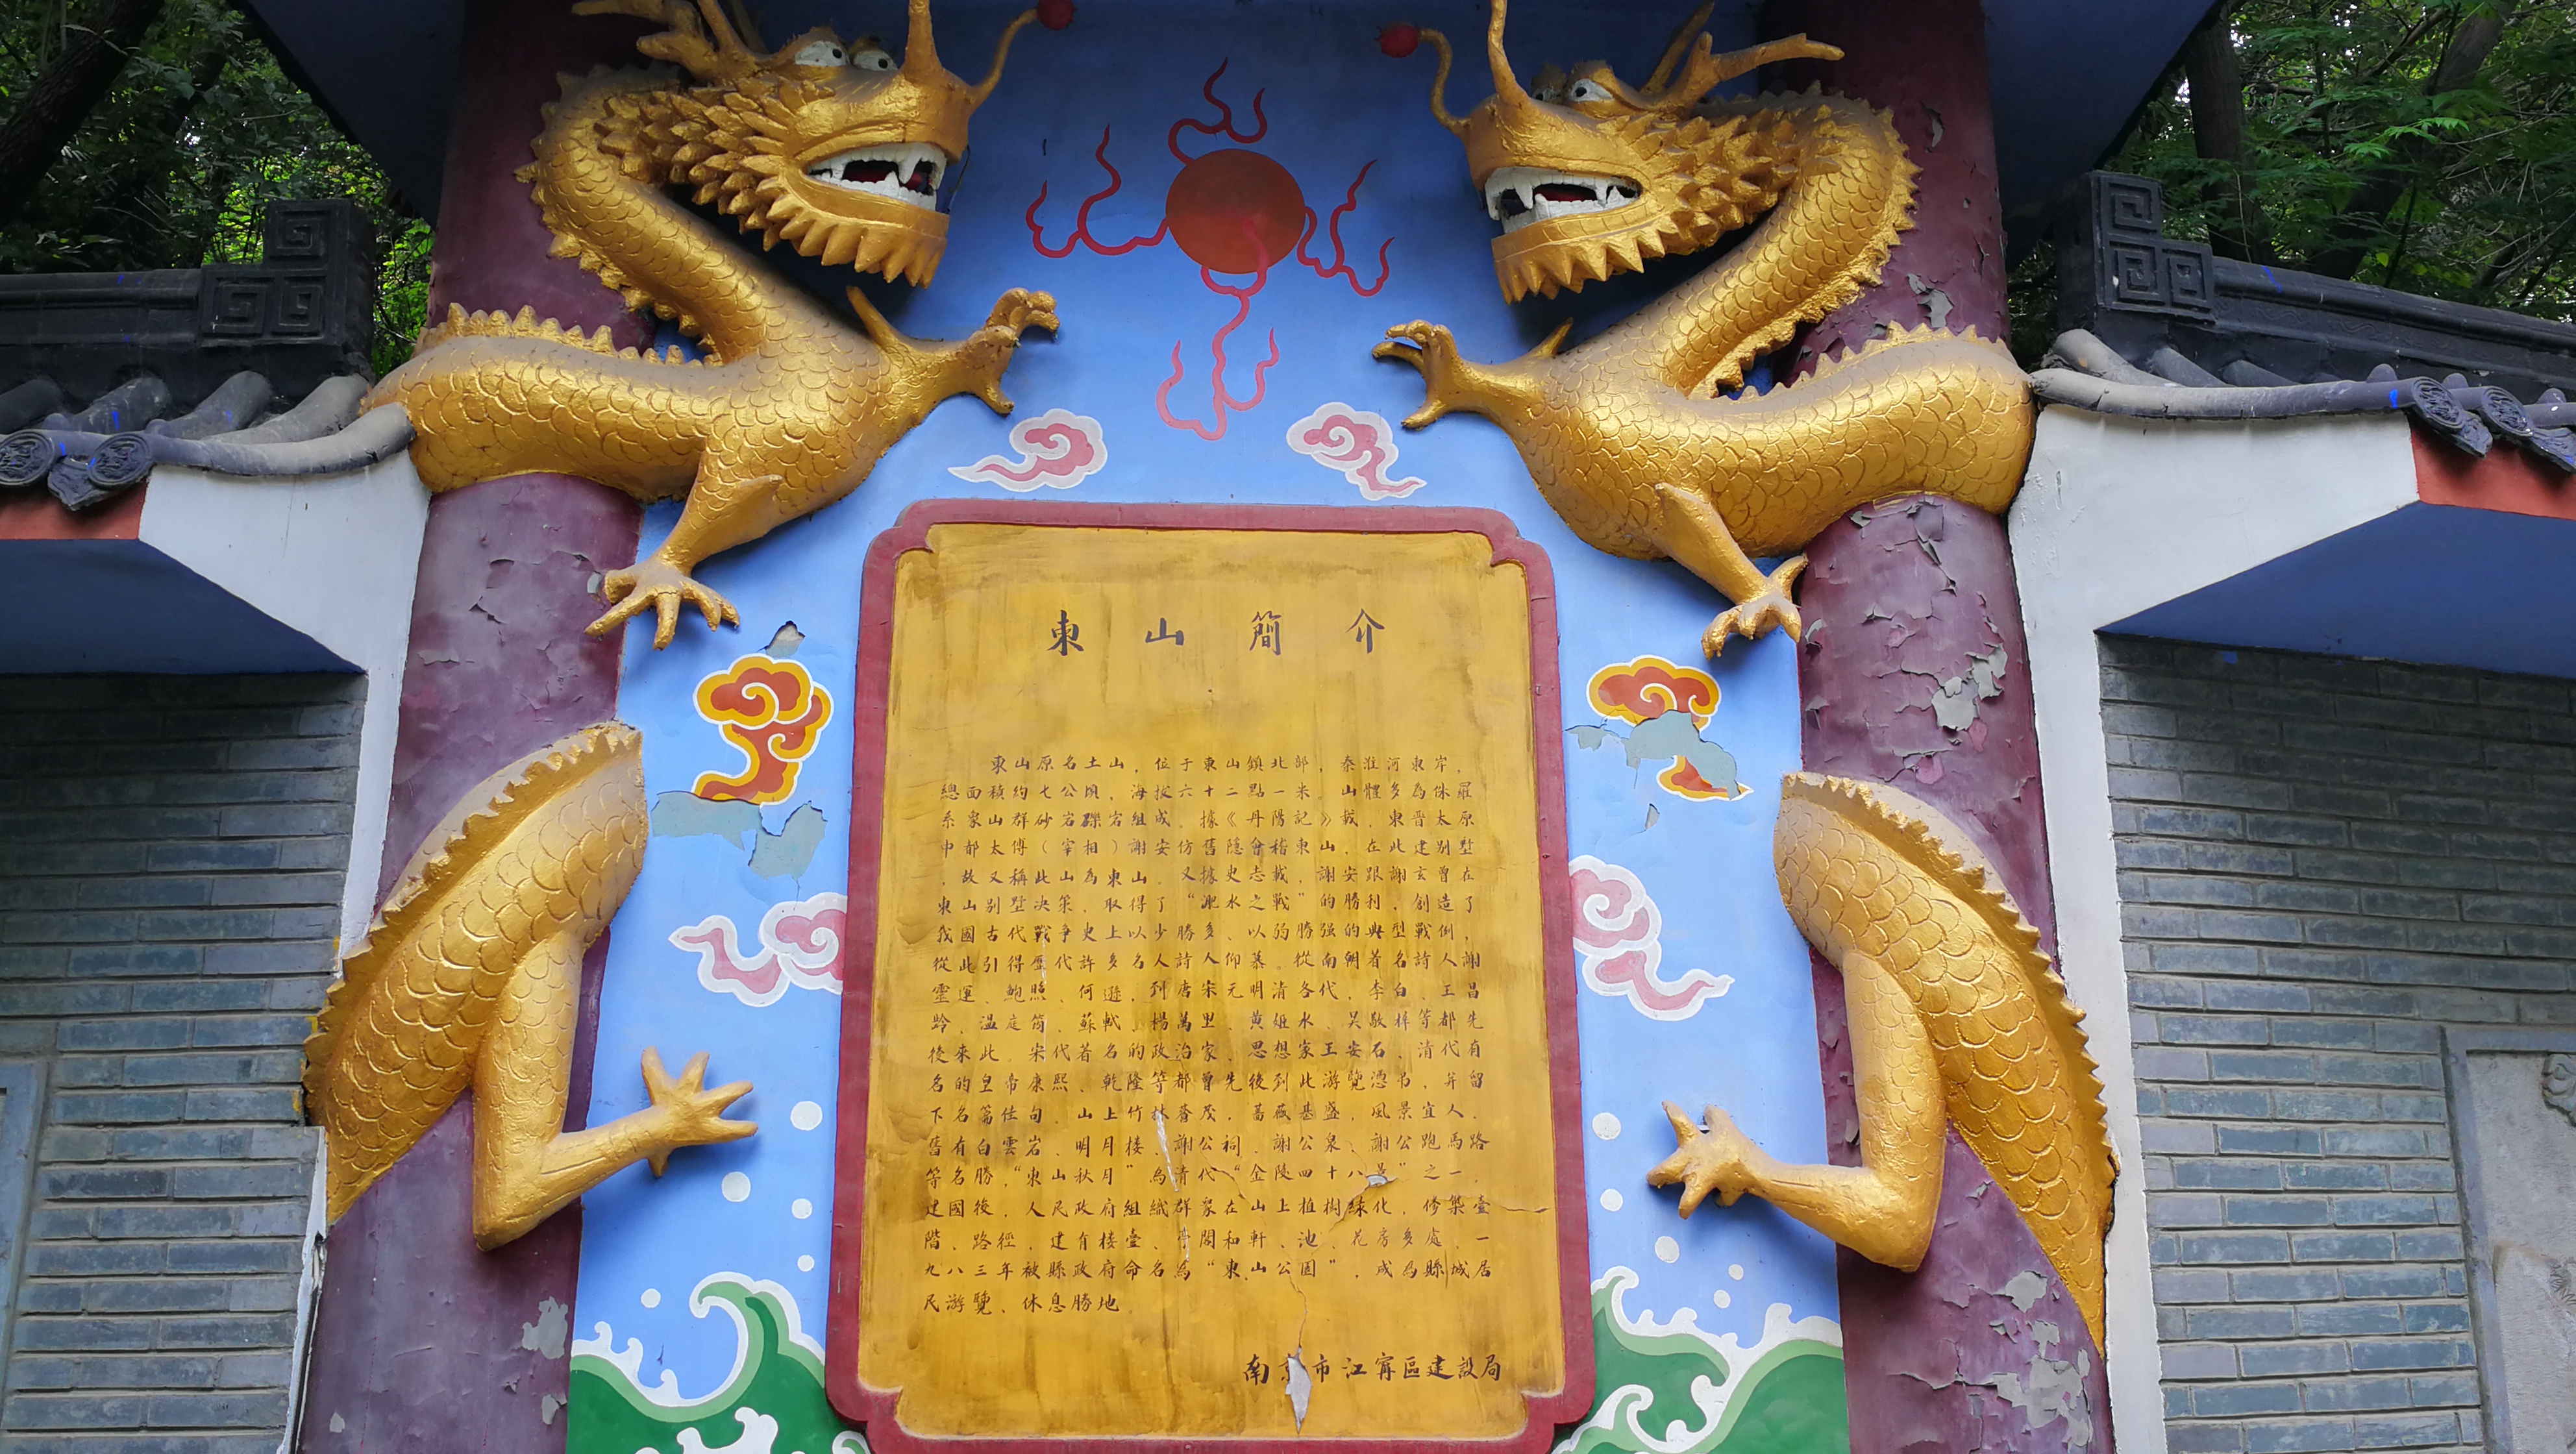 東山簡介
東山原名土山，位于東山鎮北部，秦淮河東岸，
總面積約七公頃，海拔六十二點一米，山體多為侏羅
系象山群砂岩礫岩組成，據《丹陽記》載，東晉太原
中都太傅（宰相）謝安仿舊隱會稽東山，在此建别墅
，故又稱此山為東山，又據史志載，謝安跟謝玄曾在
東山别墅决策，取得了“淝水之戰”的勝利，創造了
我國古代戰争史上以少勝多、以弱勝强的典型戰例，
從此引得歷代許多名人詩人仰慕，從南朝著名詩人謝
靈運、鮑照、何遜，到唐宋元明清各代，李白、王昌
齡、温庭筠、蘇軾、楊萬里、黄姬水、吴敬梓等都先
後來此，宋代著名的政治家、思想家王安石，清代有
名的皇帝康熙、乾隆等都曾先後到此游覽憑吊，并留
下名篇佳句，山上竹林蒼茂，薔薇甚盛，風景宜人，
舊有白雲岩、明月樓、謝公祠、謝公泉、謝公跑馬路
等名勝，“東山秋月”為清代“金陵四十八景”之一，
建國後，人民政府組織群衆在山上植樹緑化，修築臺
階、路徑，建有楼臺、亭閣和軒、池、花房多處，一
九八三年被縣政府命名為“東山公園”，成為縣城居
民游覽、休息勝地
南京市江甯區建設局